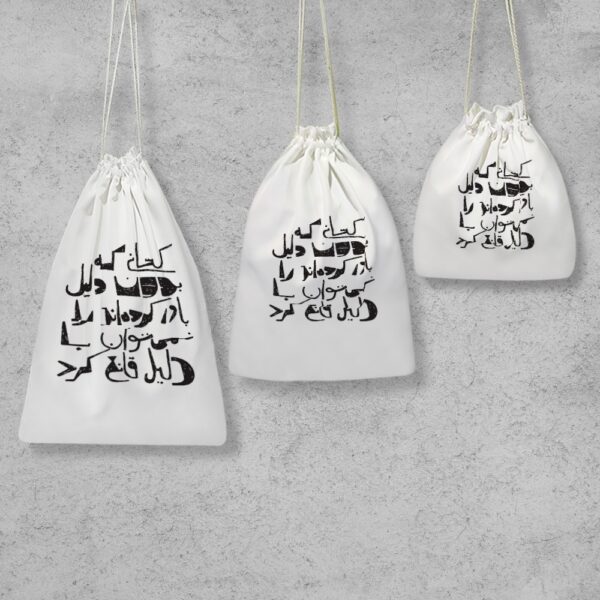 کسانی که
بدون دلیل
باور کرده‌اند را
نمی‌توان با
دلیل قانع کرد
کسانی که
بدون دلیل
باور کرده‌اند را
نمی‌توان با
دلیل قانع کرد
کسانی که
بدون دلیل
باور کرده‌اند را
نمی‌توان با
دلیل قانع کرد